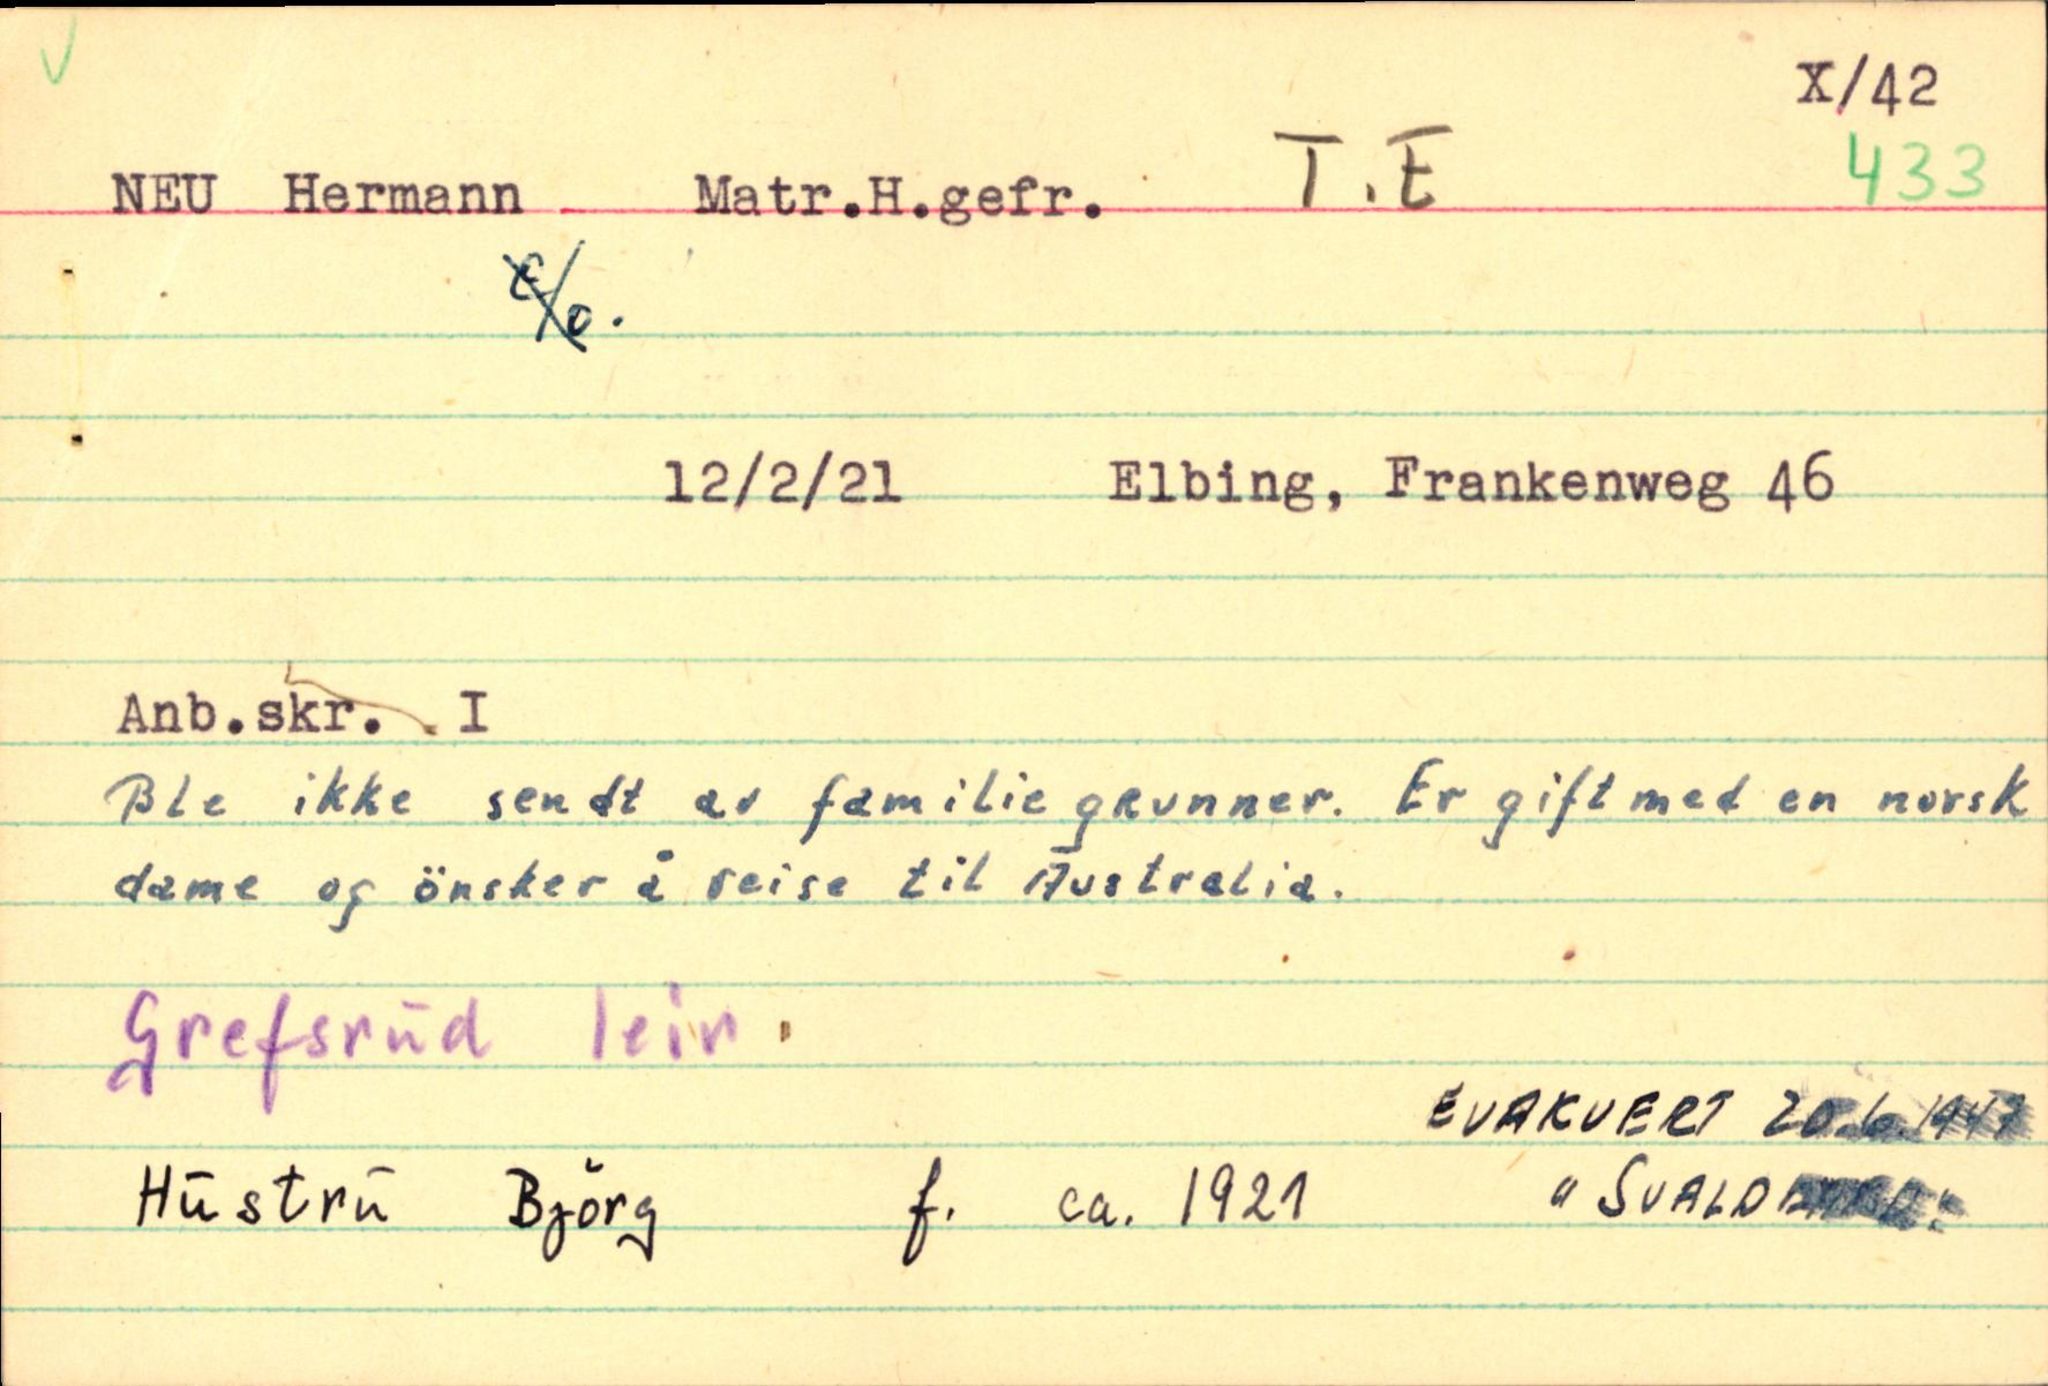 X/42
433
NEU Hermann Matr.H.gefr. T.E
c/o.
12/2/21 Elbing, Frankenweg 46
Anb.skr. I
Ble ikke sendt av familiegrunner. Er gift med en norsk
dame og önsker å reise til Australia.
Grefsrūd leir
EVAKUERT 20.6.1947
Hūstrū Björg f. ca. 1921 "